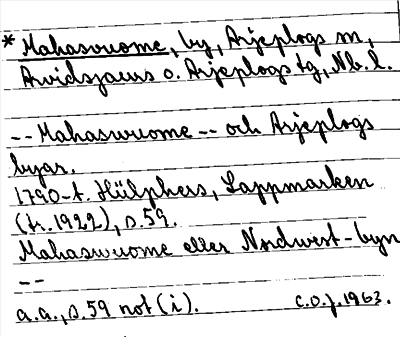 * Mahaswuome, by, Arjeplogs sn,
Arvidsjaurs o. Arjeplogs tg, Nb. l.
-- Mahaswuome -- och Arjeplogs
byar.
1790-t. Hülphers, Lappmarken
(tr. 1922), s. 59.
Mahaswuome eller Nordwest-byn
--
a.a., s. 59 not (i). C.O.J. 1963.